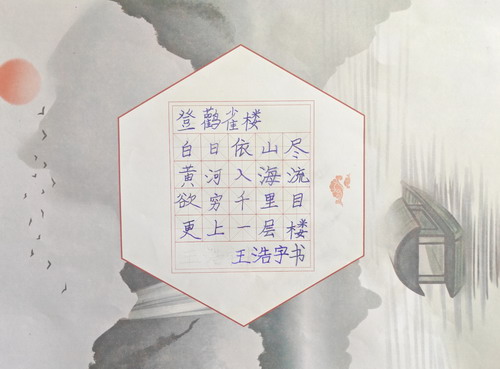 登鹳雀楼
白日依山尽
黄河入海流
欲穷千里目
更上一层楼
王浩字书